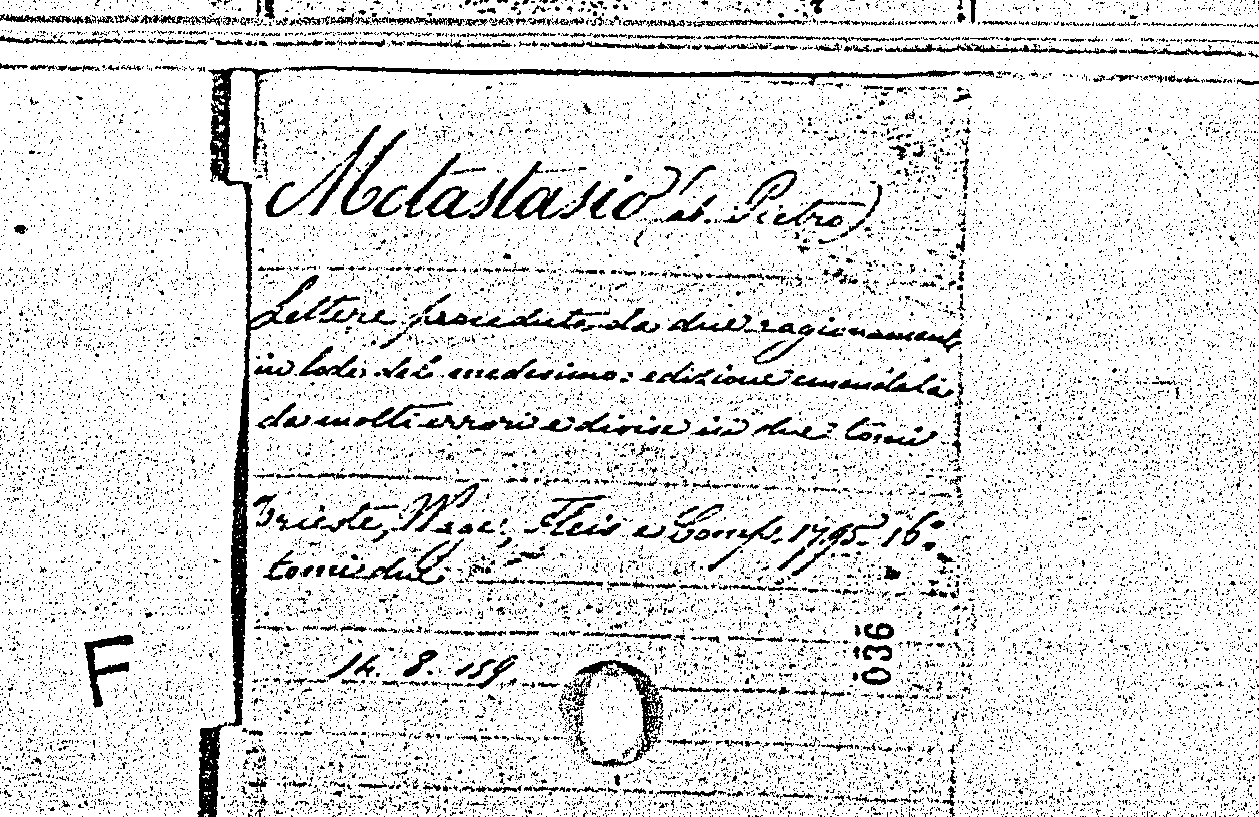 Metastasio (ab. Pietro)
Lettere precedute da due ragionamenti
in lode del medesimo: edizione emendata
da molti errori e divisa in due tomi
Trieste, Wage, Fleis e Comp. 1795. 16°.
tomi due
14. 8. 159.
036
F